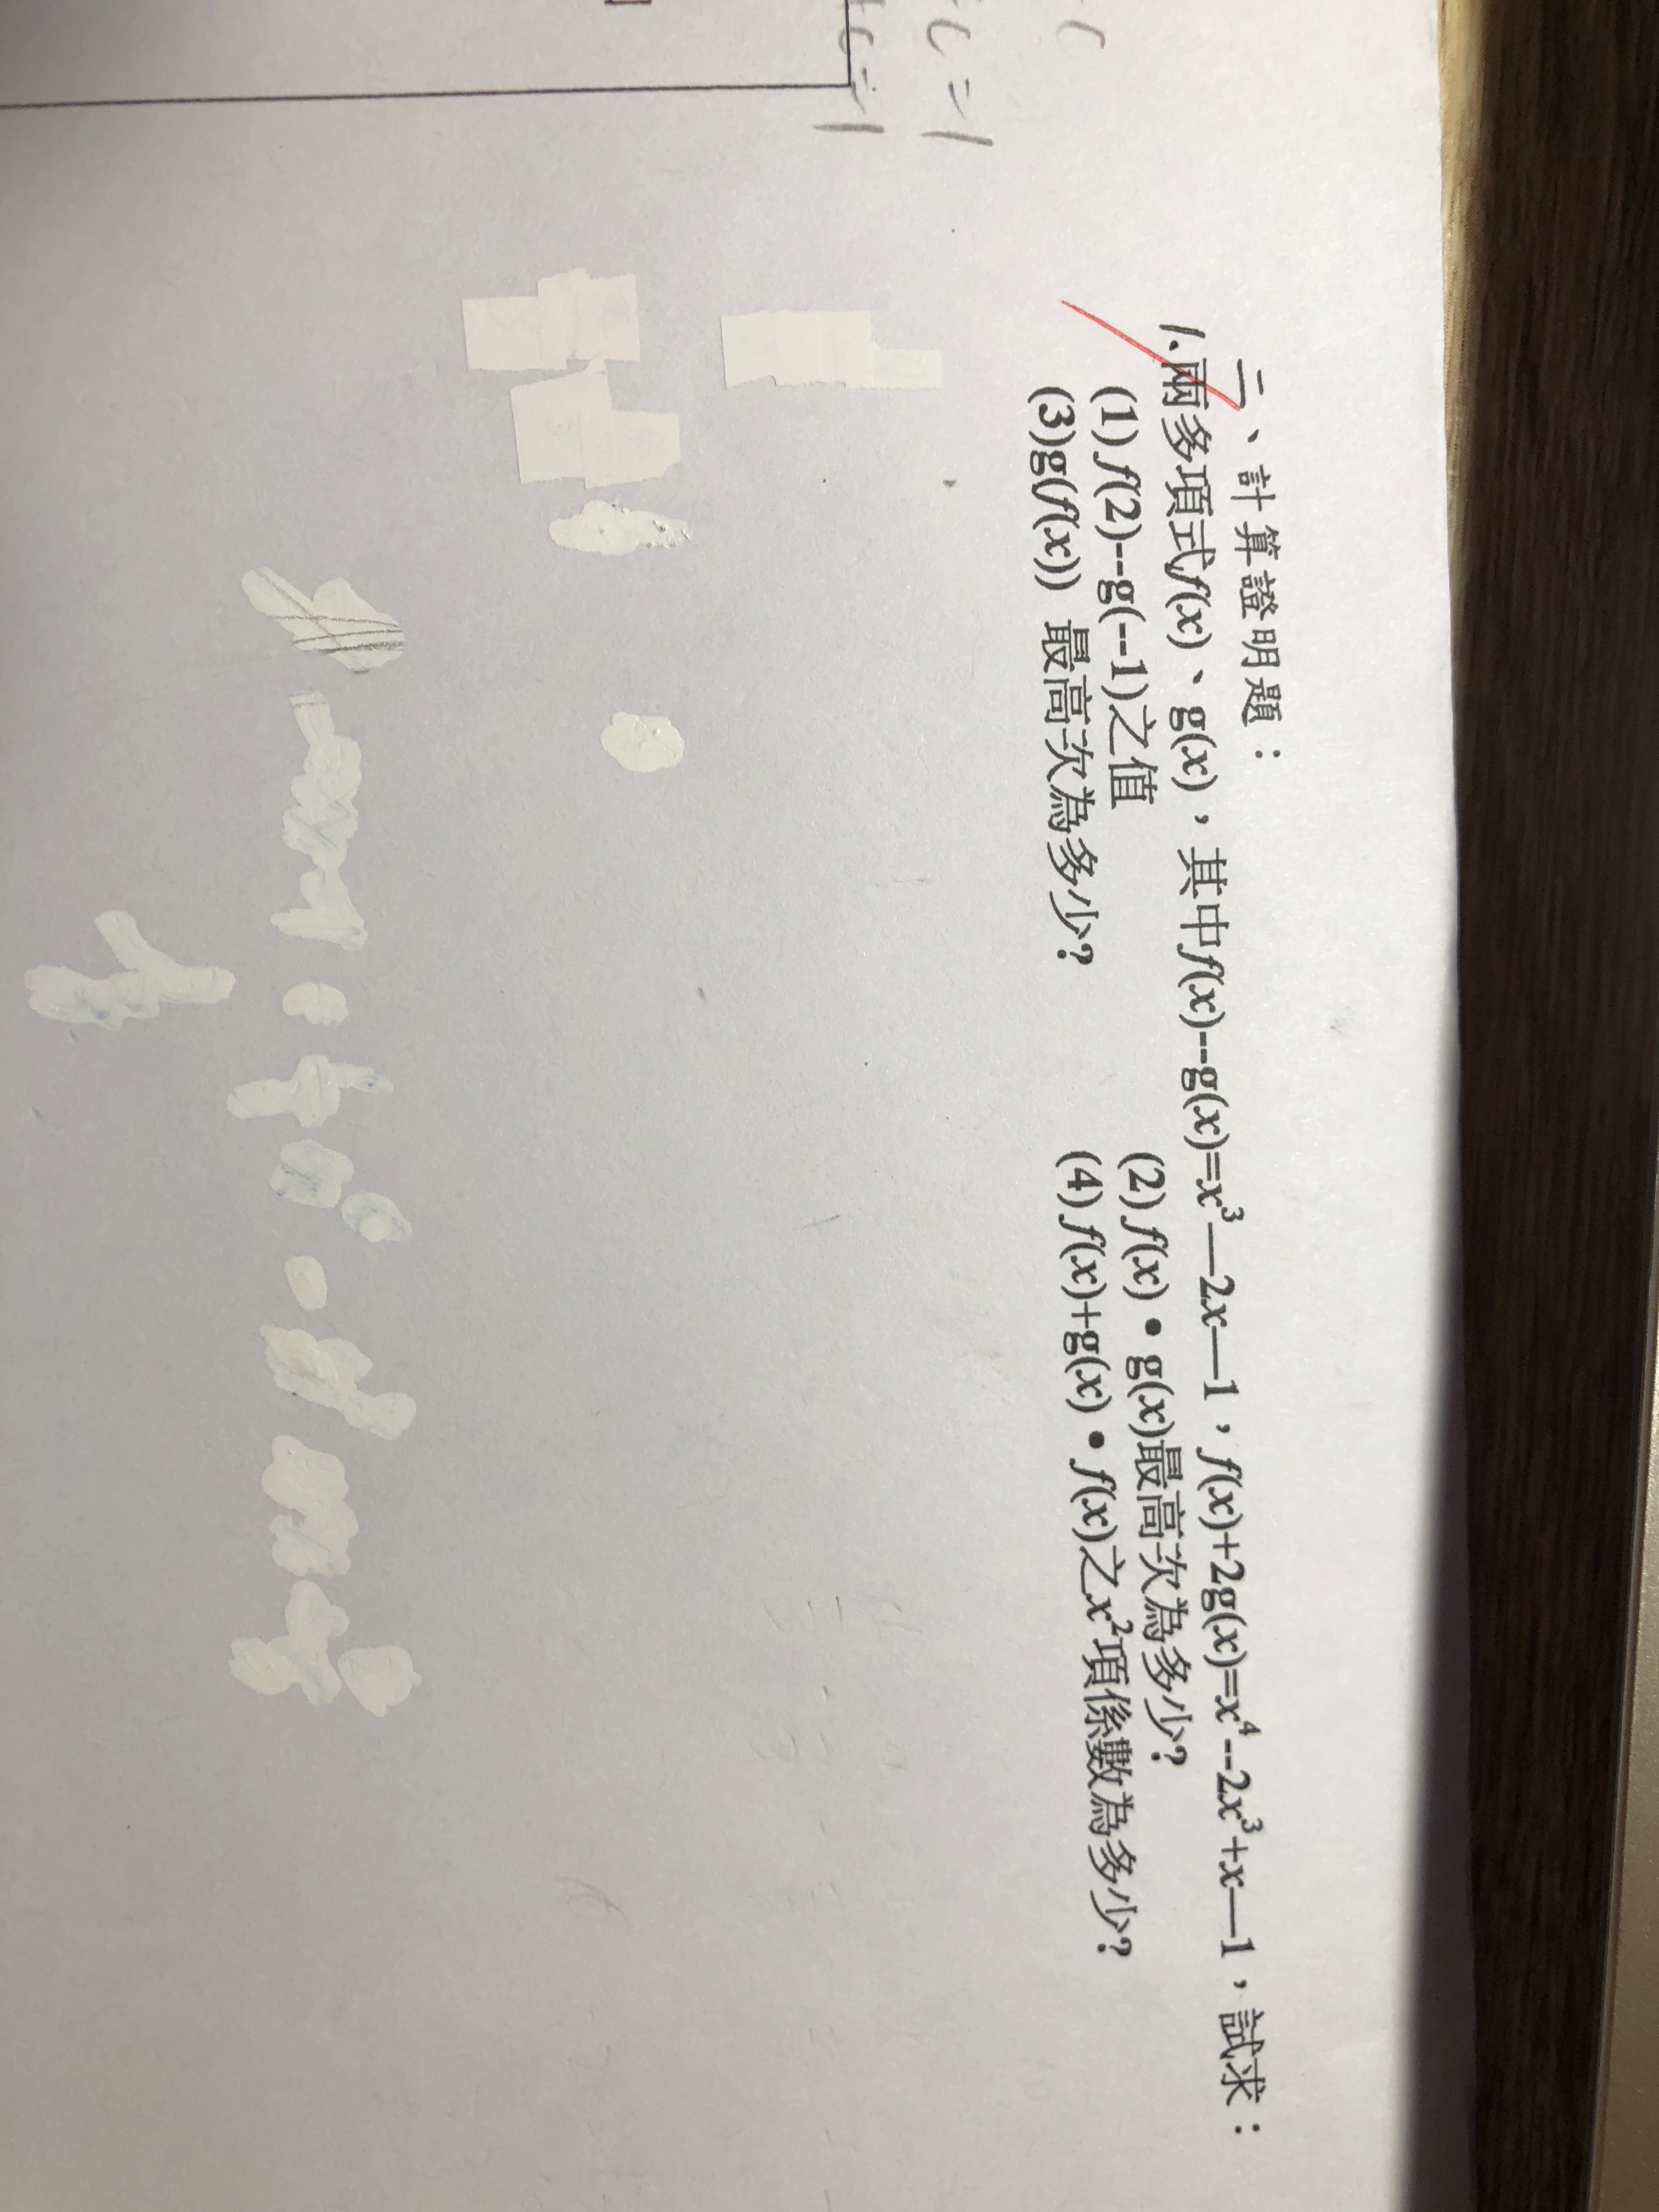 -C
C=-1
+C=-1
二、計算證明題：
1.兩多項式f(x)、g(x)，其中f(x)--g(x)=x³—2x—1，f(x)+2g(x)=x⁴--2x³+x—1，試求：
(1) f(2)--g(--1)之值 (2) f(x)•g(x)最高次為多少?
(3)g(f(x)) 最高次為多少? (4) f(x)+g(x)•f(x)之x²項係數為多少?